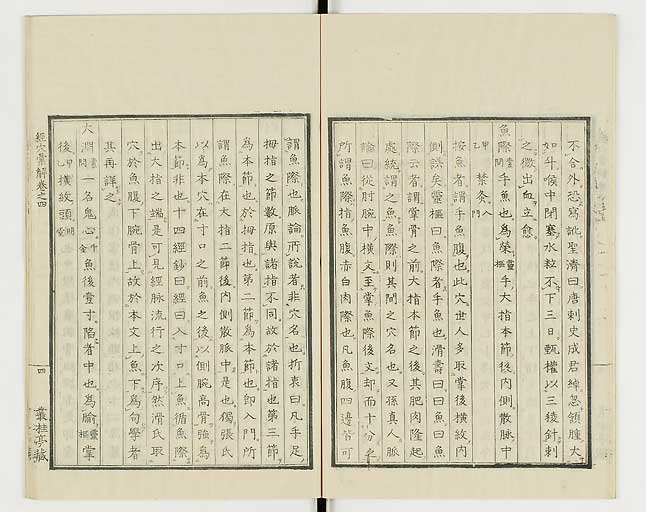 不合外恐寫訛聖濟曰唐刺史成君綽忽頷腫大
如升喉中閉塞水粒不下三日甄權以三稜針刺
之微出血立愈
魚際靈問手魚也爲滎靈樞手大指本節後內側散脈中
甲乙禁灸入門
按魚者謂手魚腹也此穴世人多取掌後橫紋內
側誤矣靈樞曰魚際者手魚也滑壽曰曰魚曰魚
際云者謂掌骨之前大指本節之後其肥肉隆起
處統謂之魚魚際則其間之穴名也又孫真人脈
論曰從肘腕中橫文至掌魚際後文却而十分之
所謂魚際指魚腹赤白肉際也凡魚腹四邊皆可
謂魚際也脈論所說者非穴名也折衷曰凡手足
拇指之節數原與諸指不同故於諸指也第三節
爲本節也於拇指也第二節爲本節也卽入門所
謂魚際在大指二節後內側散脈中是也獨張氏
以爲本穴在寸口之前魚之後以側腕高骨強爲
本節非也十四經鈔曰經曰入寸口上魚循魚際
出大指之端是可見經脈流行之次序然滑氏取
穴於魚腹下腕骨上故於本文上魚下爲句學者
其再詳之
大淵靈問一名鬼心千金魚後壹寸陷者中也爲腧靈樞掌
後甲乙橫紋頭明堂
經穴彙解卷之四
四
叢桂亭藏